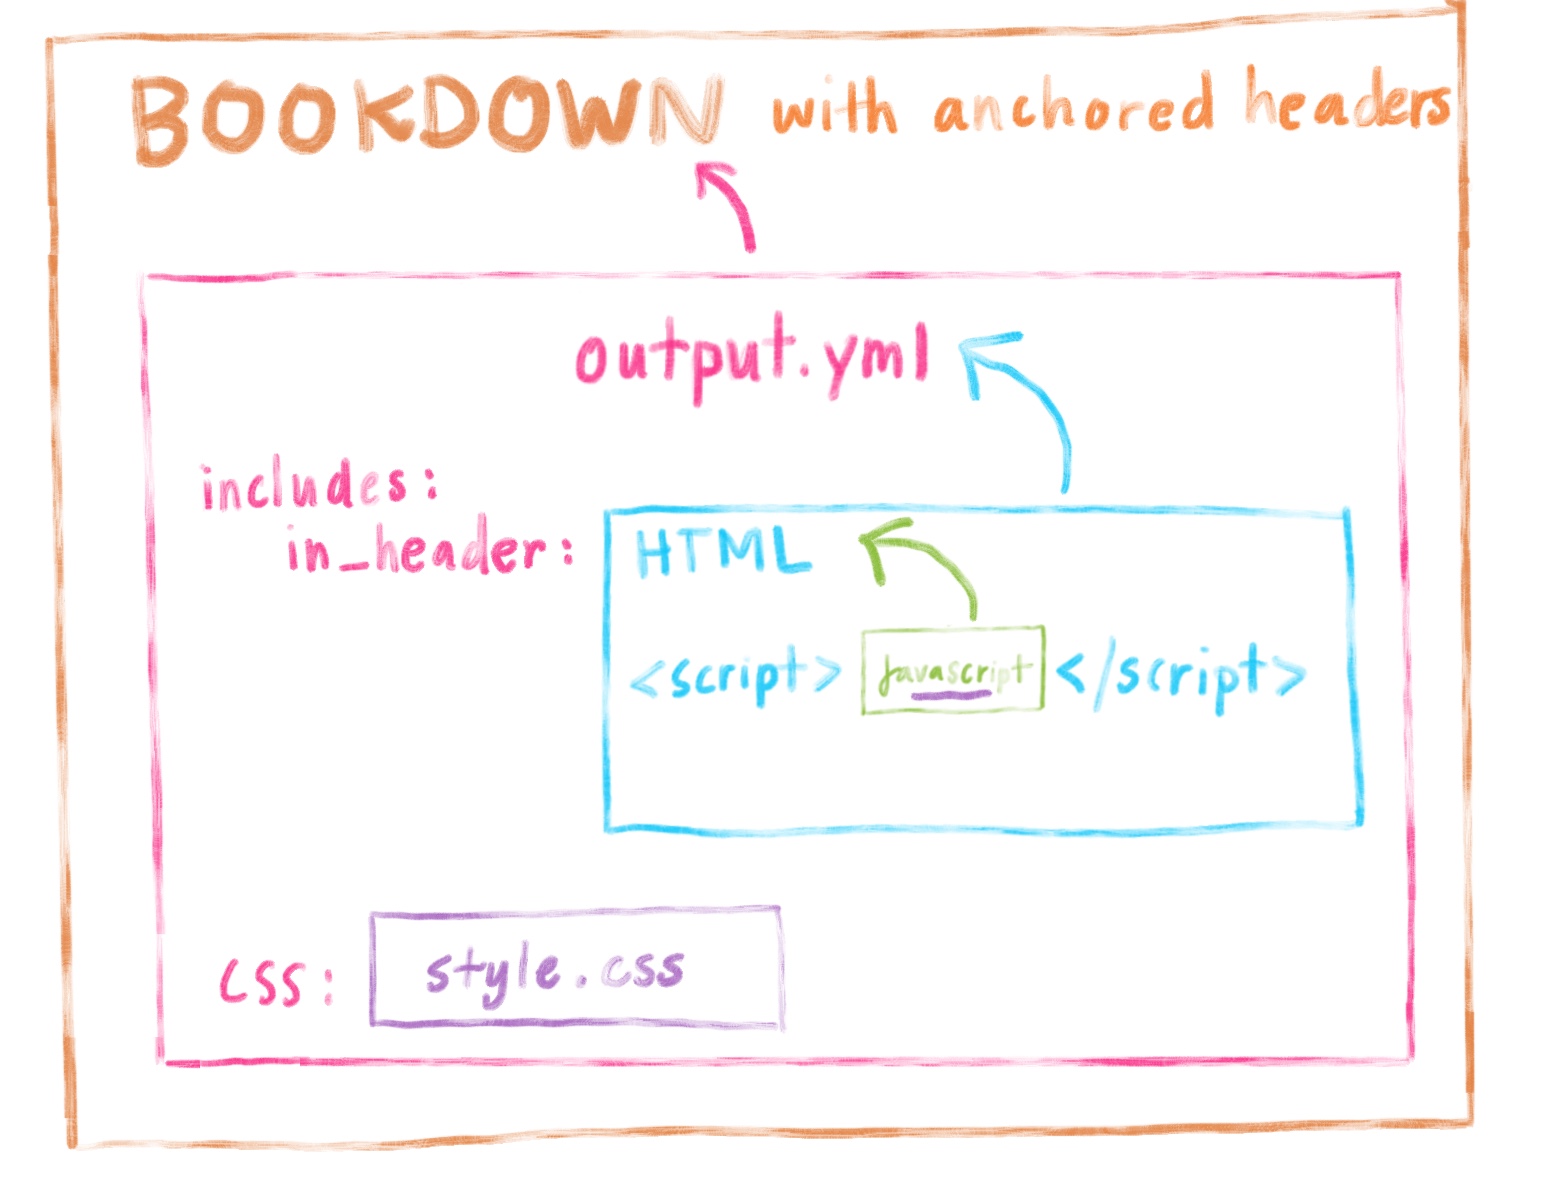 BOOKDOWN with anchored headers
output.yml
includes:
in_header:
HTML
<script> javascript </script>
CSS: style.css